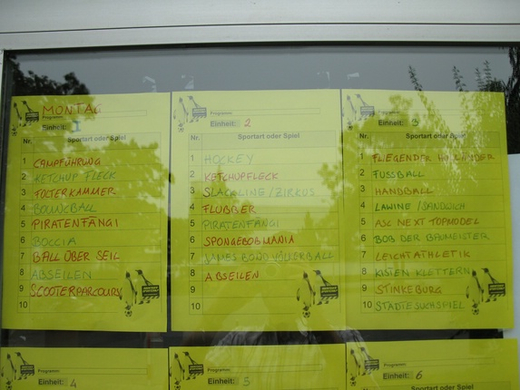 MONTAG
Programm:
Einheit: 1
Nr. Sportart oder Spiel
1 CAMPFÜHRUNG
2 KETCHUP FLECK
3 FOLTERKAMMER
4 BOUNCEBALL
5 PIRATENFANGI
6 BOCCIA
7 BALL ÜBER SEIL
8 ABSEILEN
9 SCOOTERPARCOURS
10
Programm:
Einheit: 2
Nr. Sportart oder Spiel
1 HOCKEY
2 KETCHUPFLECK
3 SLACKLINE/ZIRKUS
4 FLUBBER
5 PIRATENFANGI
6 SPONGEBOBMANIA
7 JAMES BOND VÖLKERBALL
8 ABSEILEN
9
10
Programm:
Einheit: 3
Nr. Sportart oder Spiel
1 FLIEGENDER HOLLÄNDER
2 FUSSBALL
3 HANDBALL
4 LAWINE/SANDWICH
5 ASC NEXT TOPMODEL
6 BOB DER BAUMEISTER
7 LEICHTATHLETIK
8 KISTEN KLETTERN
9 STINKEBURG
10 STADTESUCHSPIEL
Programm:
Einheit: 4
Programm:
Einheit: 5
Programm:
Einheit: 6
Sportart oder Spiel